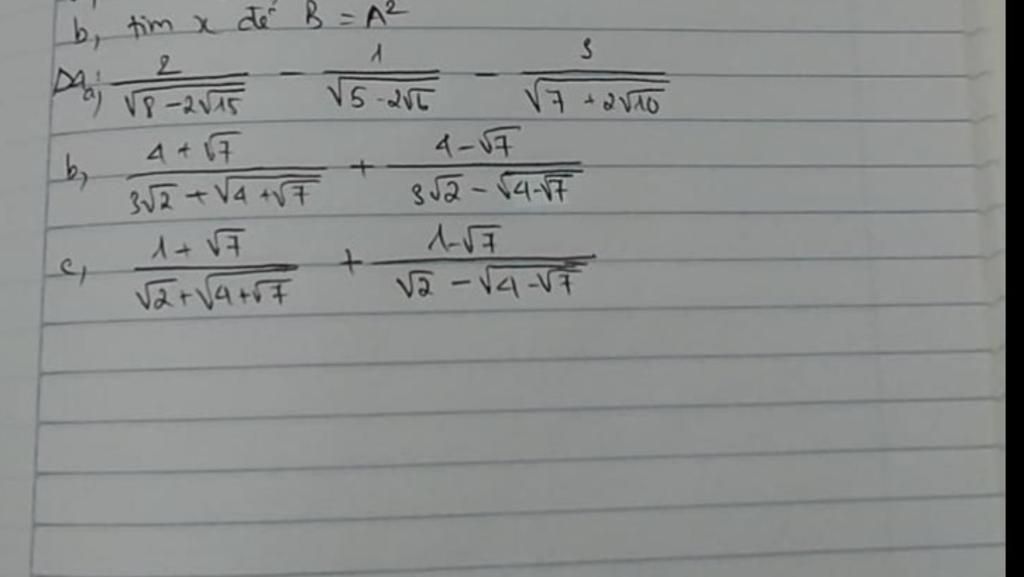 b, tìm x để B = A²
a, 2/√(8-2√15) - 1/√(5-2√6) - 3/√(7+2√10)
b, (4+√7)/(3√2+√(4+√7)) + (4-√7)/(3√2-√(4-√7))
c, (1+√7)/(√2+√(4+√7)) + (1-√7)/(√2-√(4-√7))